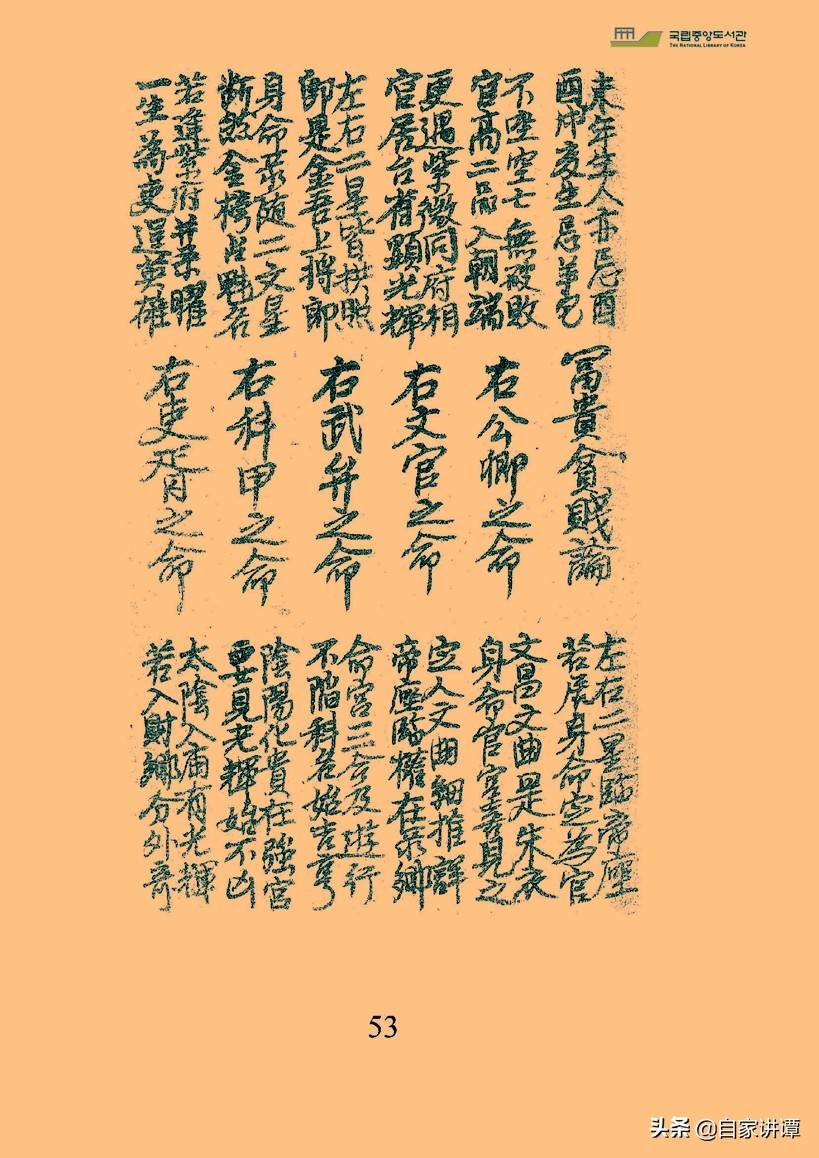 국립중앙도서관
THE NATIONAL LIBRARY OF KOREA
未年生人亦忌酉
酉戌亥生忌
不坐空亡無破敗
官高二品入朝端
更遇紫微同府相
官居台省顯光輝
左右二星皆拱照
即是金吾上將郎
身命随二文星
断然金榜占魁名
若逢紫府并曜
一生為吏逞英雄
冨貴貧賤論
右公卿之命
右文官之命
右武弁之命
右科甲之命
右吏胥之命
左右二星臨帝座
若居身命定為官
文昌文曲是朱衣
身命官喜見之
定人文曲細推詳
帝座臨權在鄉
命宮三合及遊行
不陷科名始吉亨
陰陽化貴在強宮
要見光輝始不凶
太陰入庙有光輝
若入財鄉分外奇
53
头条 @自家讲谭